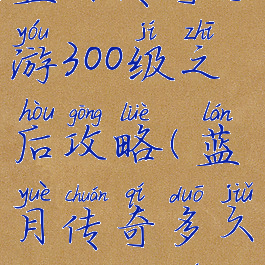 yóu jí zhī
游300级之
hòu gōng lüè lán
后攻略(蓝
yuè chuán qí duō jiǔ
月传奇多久